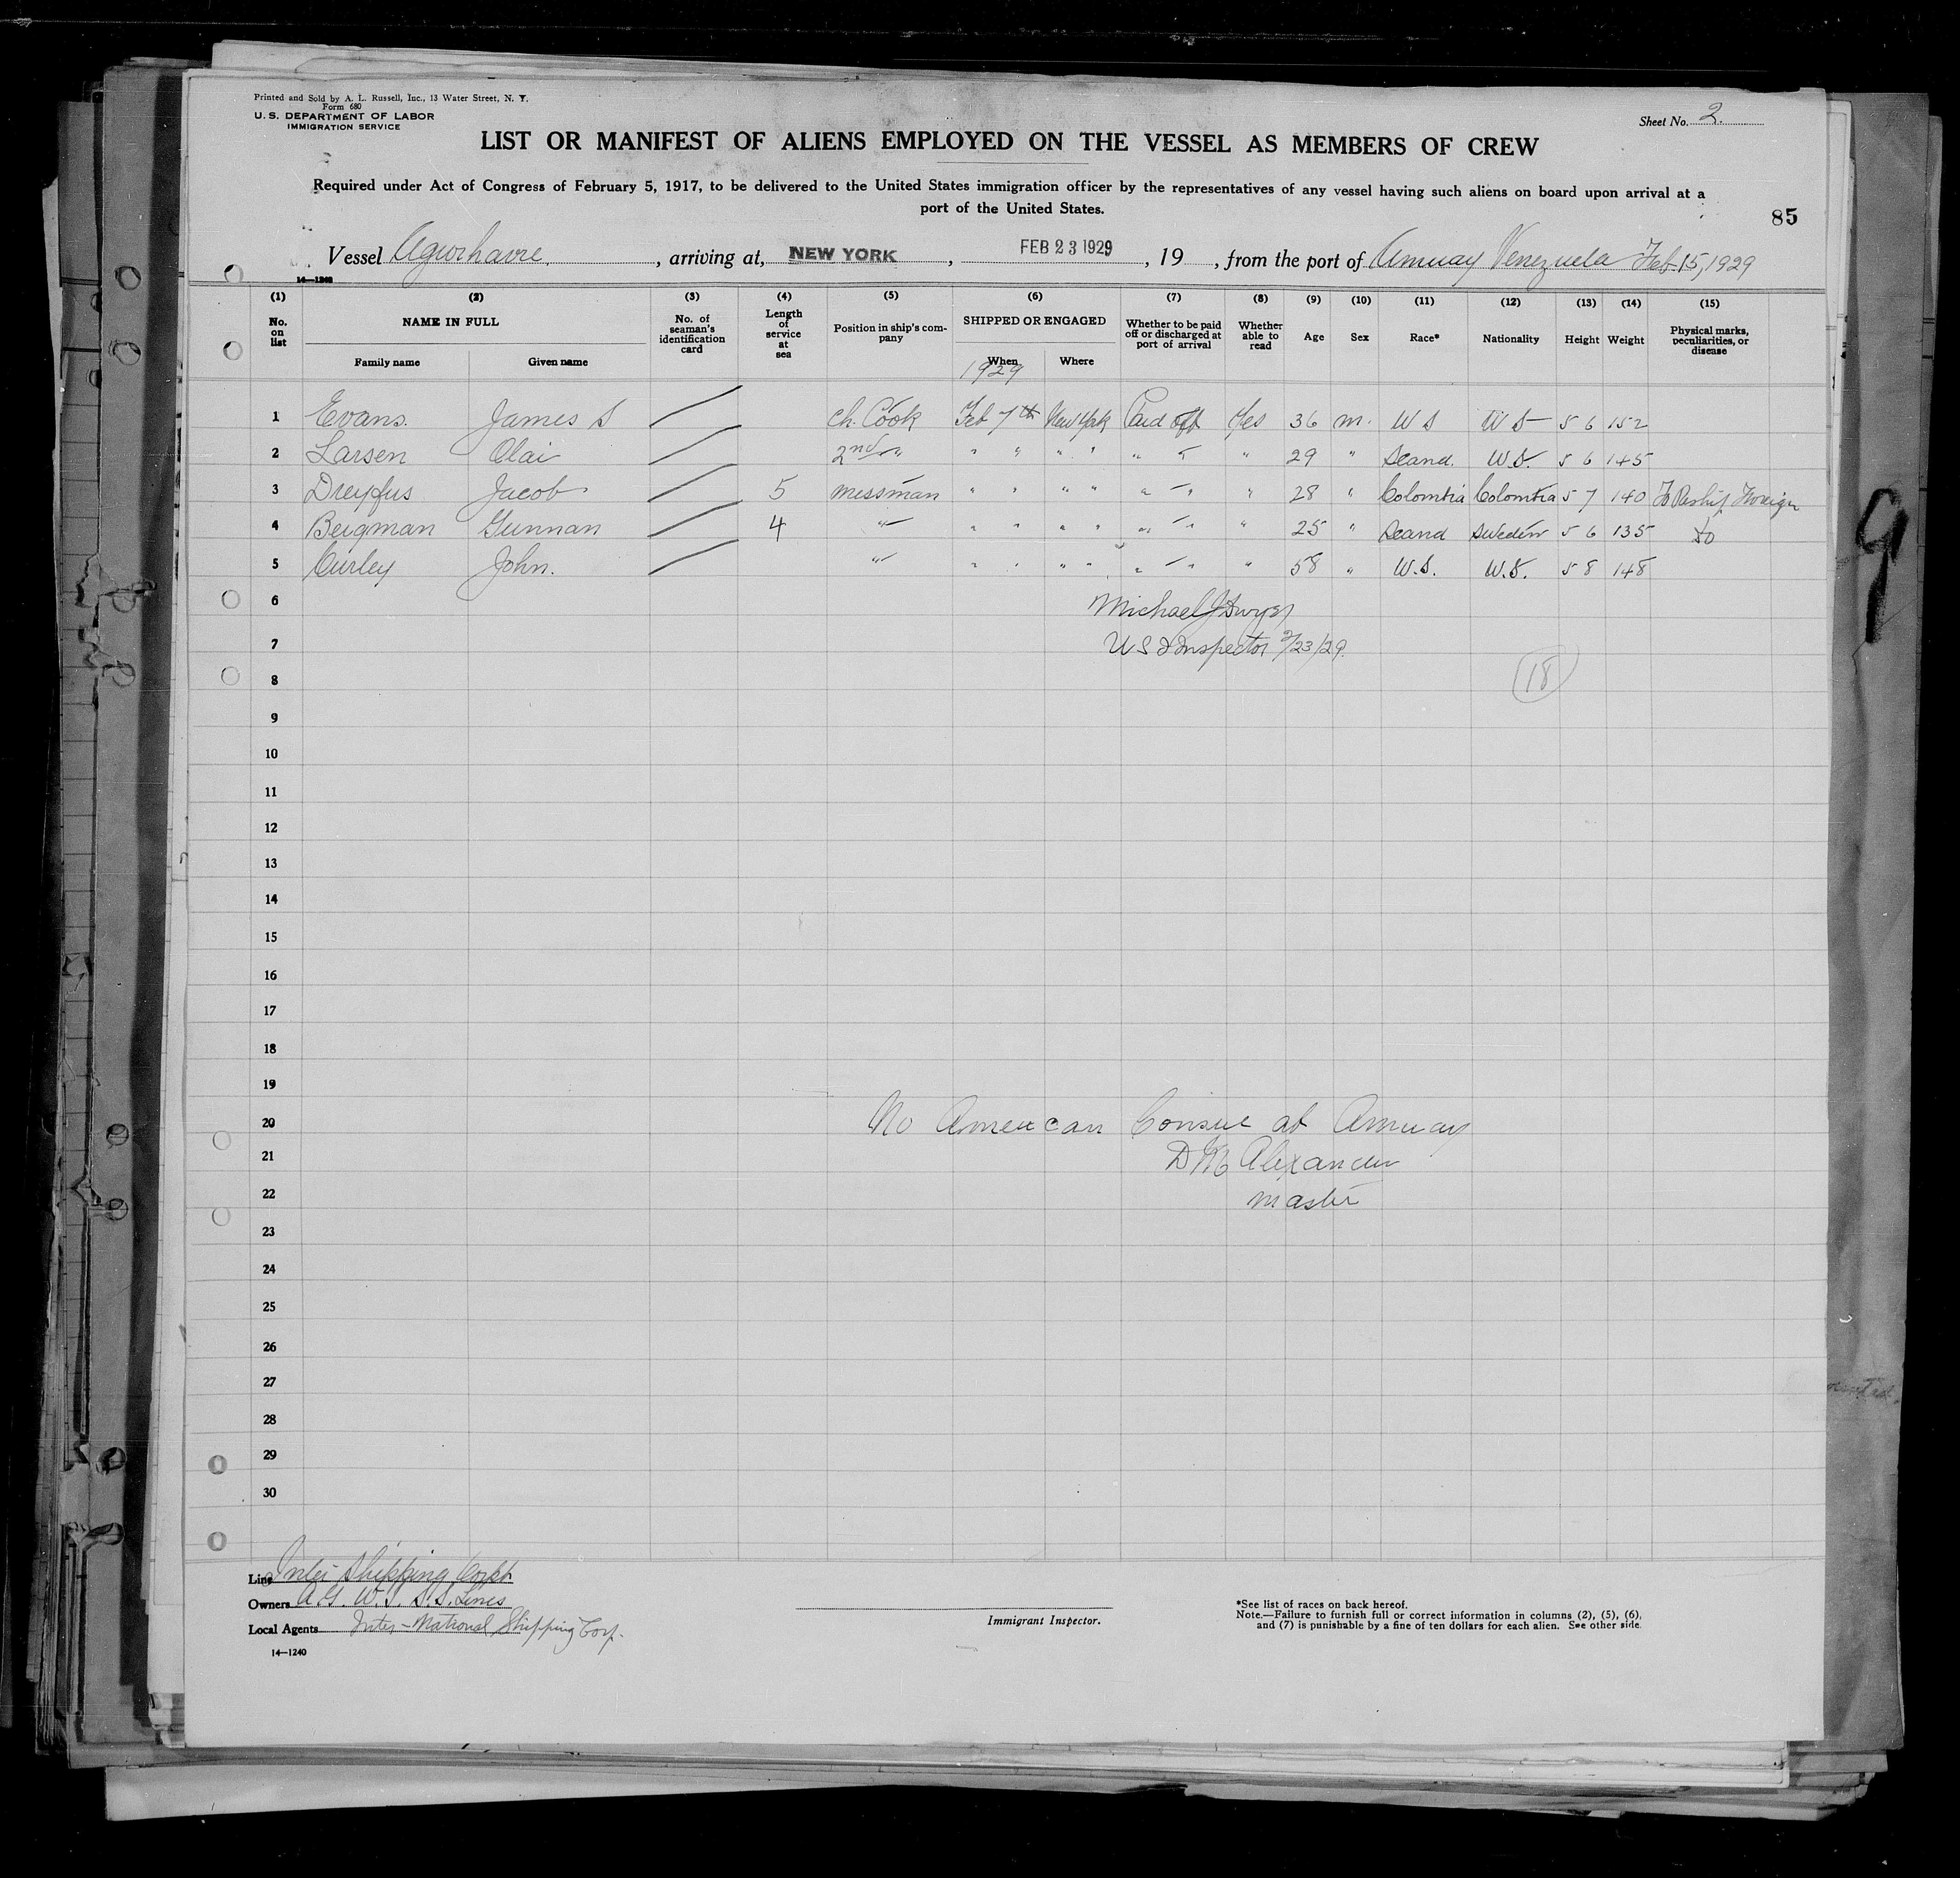 Printed and Sold by A. L. Russell, Inc., 13 Water Street, N. Y.
Form 680
U. S. DEPARTMENT OF LABOR
IMMIGRATION SERVICE
Sheet No. 2.
LIST OR MANIFEST OF ALIENS EMPLOYED ON THE VESSEL AS MEMBERS OF CREW
Required under Act of Congress of February 5, 1917, to be delivered to the United States immigration officer by the representatives of any vessel having such aliens on board upon arrival at a
port of the United States.
85
Vessel Agwihavre, arriving at, NEW YORK, FEB 23 1929, 19 , from the port of Amuay Venezuela Feb 15, 1929
14—1240
(1) (2) (3) (4) (5) (6) (7) (8) (9) (10) (11) (12) (13) (14) (15)
No. on list
NAME IN FULL
Family name Given name
No. of seaman's identification card
Length of service at sea
Position in ship's company
SHIPPED OR ENGAGED
When Where
1929
Whether to be paid off or discharged at port of arrival
Whether able to read
Age
Sex
Race*
Nationality
Height
Weight
Physical marks, peculiarities, or disease
1 Evans. James S ch. Cook Feb 7th New York Paid off Yes 36 m. U S U S 5 6 152
2 Larsen Olai 2nd " " " " " " " 29 " Scand. U.S. 5 6 145
3 Dreyfus Jacob 5 messman " " " " " " " 28 " Colombia Colombia 5 7 140 To Reship Foreign
4 Bergman Gunnan 4 " " " " " " " " 25 " Scand Sweden 5 6 135 do
5 Curley John. " " " " " " " " 58 " U.S. U.S. 5 8 148
6
Michael J Dwyer
7
U S I Inspector 2/23/29.
8
18
9
10
11
12
13
14
15
16
17
18
19
20
No American Consul at Amuay
21
D M Alexander
22
master
23
24
25
26
27
28
29
30
Line Inter Shipping Corp.
Owners A.G.W.I. S.S. Lines
Local Agents Inter-National Shipping Corp.
14—1240
Immigrant Inspector.
*See list of races on back hereof.
Note.—Failure to furnish full or correct information in columns (2), (5), (6),
and (7) is punishable by a fine of ten dollars for each alien. See other side.
9